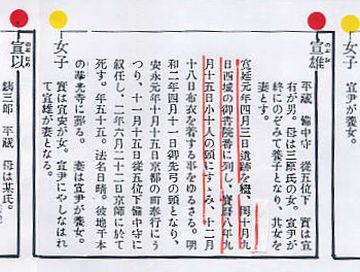 女子
宣尹が養女。
宣雄
のぶを
平蔵 備中守 從五位下 實は宣
有が男。母は三原氏の女。宣尹が
終にのぞみて養子となり、其女を
妻とす。
寛延元年四月三日遺跡を繼、閏十月九
日西城の御書院番に列し、寶暦八年九
月十五日小十人の頭にすゝみ、十二月
十八日布衣を着する事をゆるさる。明
和二年四月十一日御先弓の頭となり、
安永元年十月十五日京都の町奉行にう
つり、十一月十五日從五位下備中守に
叙任し、二年六月二十二日京師に於て
死す。年五十五。法名日晴。彼地千本
の華光寺に葬る。妻は宣尹が養女。
女子
實は宣安が女。宣尹にやしなはれ
て宣雄が妻となる。
宣以
のぶため
銕三郎 平蔵 母は某氏。